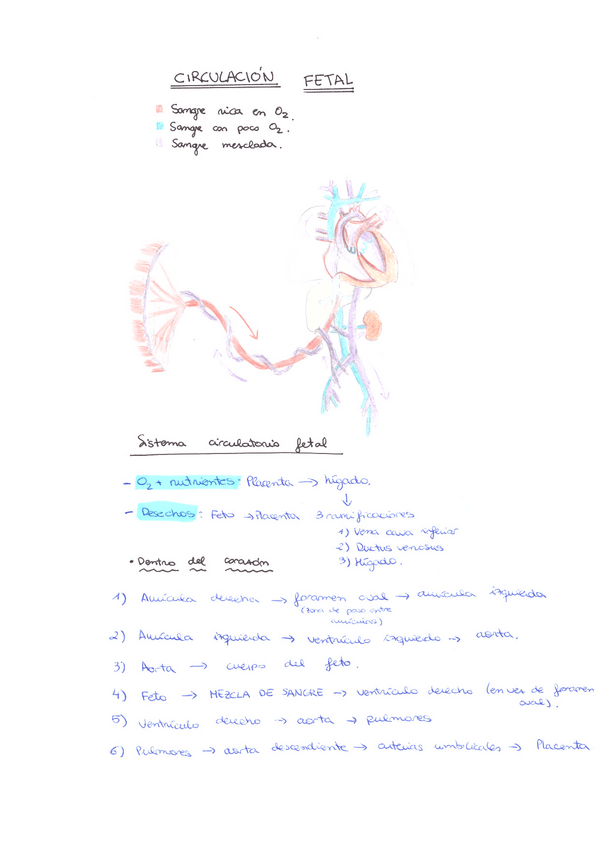 CIRCULACIÓN FETAL
Sangre rica en O₂.
Sangre con poco O₂.
Sangre mesclada.
Sistema circulatorio fetal
- O₂ + nutrientes: Placenta → hígado.
↓
- Desechos: Feto → Placenta 3 ramificaciones
1) Vena cava inferior
2) Ductus venosus
3) Hígado.
• Dentro del corazón
1) Aurícula derecha → foramen oval → aurícula izquierda
(zona de paso entre
aurículas)
2) Aurícula izquierda → ventrículo izquierdo → aorta.
3) Aorta → cuerpo del feto.
4) Feto → MEZCLA DE SANGRE → ventrículo derecho (en vez de foramen
oval).
5) Ventrículo derecho → aorta → pulmones
6) Pulmones → aorta descendiente → arterias umbilicales → Placenta